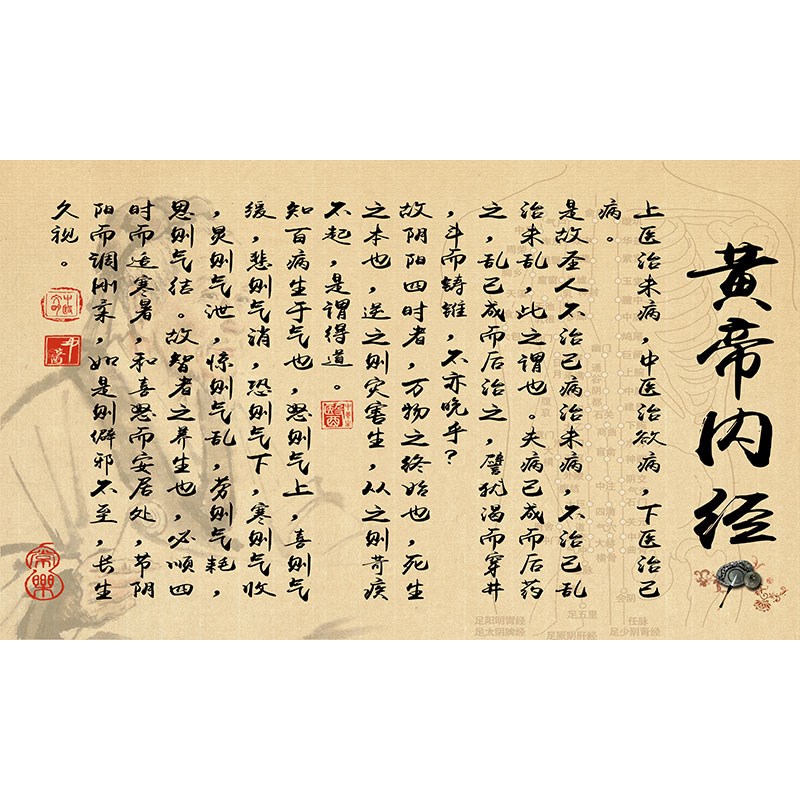 黄帝内经
上医治未病，中医治欲病，下医治已
病。
是故圣人不治已病治未病，不治已乱
治未乱，此之谓也。夫病已成而后药
之，乱已成而后治之，譬犹渴而穿井
，斗而铸锥，不亦晚乎？
故阴阳四时者，万物之终始也，死生
之本也，逆之则灾害生，从之则苛疾
不起，是谓得道。
知百病生于气也，怒则气上，喜则气
缓，悲则气消，恐则气下，寒则气收
，炅则气泄，惊则气乱，劳则气耗，
思则气结。故智者之养生也，必顺四
时而适寒暑，和喜怒而安居处，节阴
阳而调刚柔，如是则僻邪不至，长生
久视。
常樂
会阴
足五里
任脉
足阳明胃经
足太阴脾经
足厥阴肝经